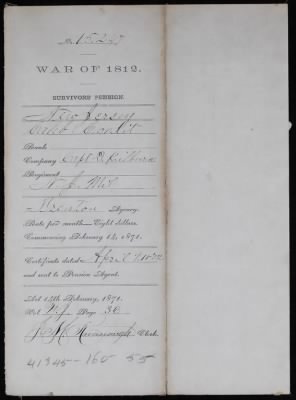 15,227
WAR OF 1812.
SURVIVORS PENSION
New Jersey
Caleb Condit
Rank
Company Capt
Regiment N.J. Mil
Trenton Agency.
Rate per month Eight dollars.
Commencing February 14, 1871.
Certificate dated April
and sent to Pension Agent.
Act 14th February, 1871.
Vol. N.J. Page 36
Clerk.
41345-160 55